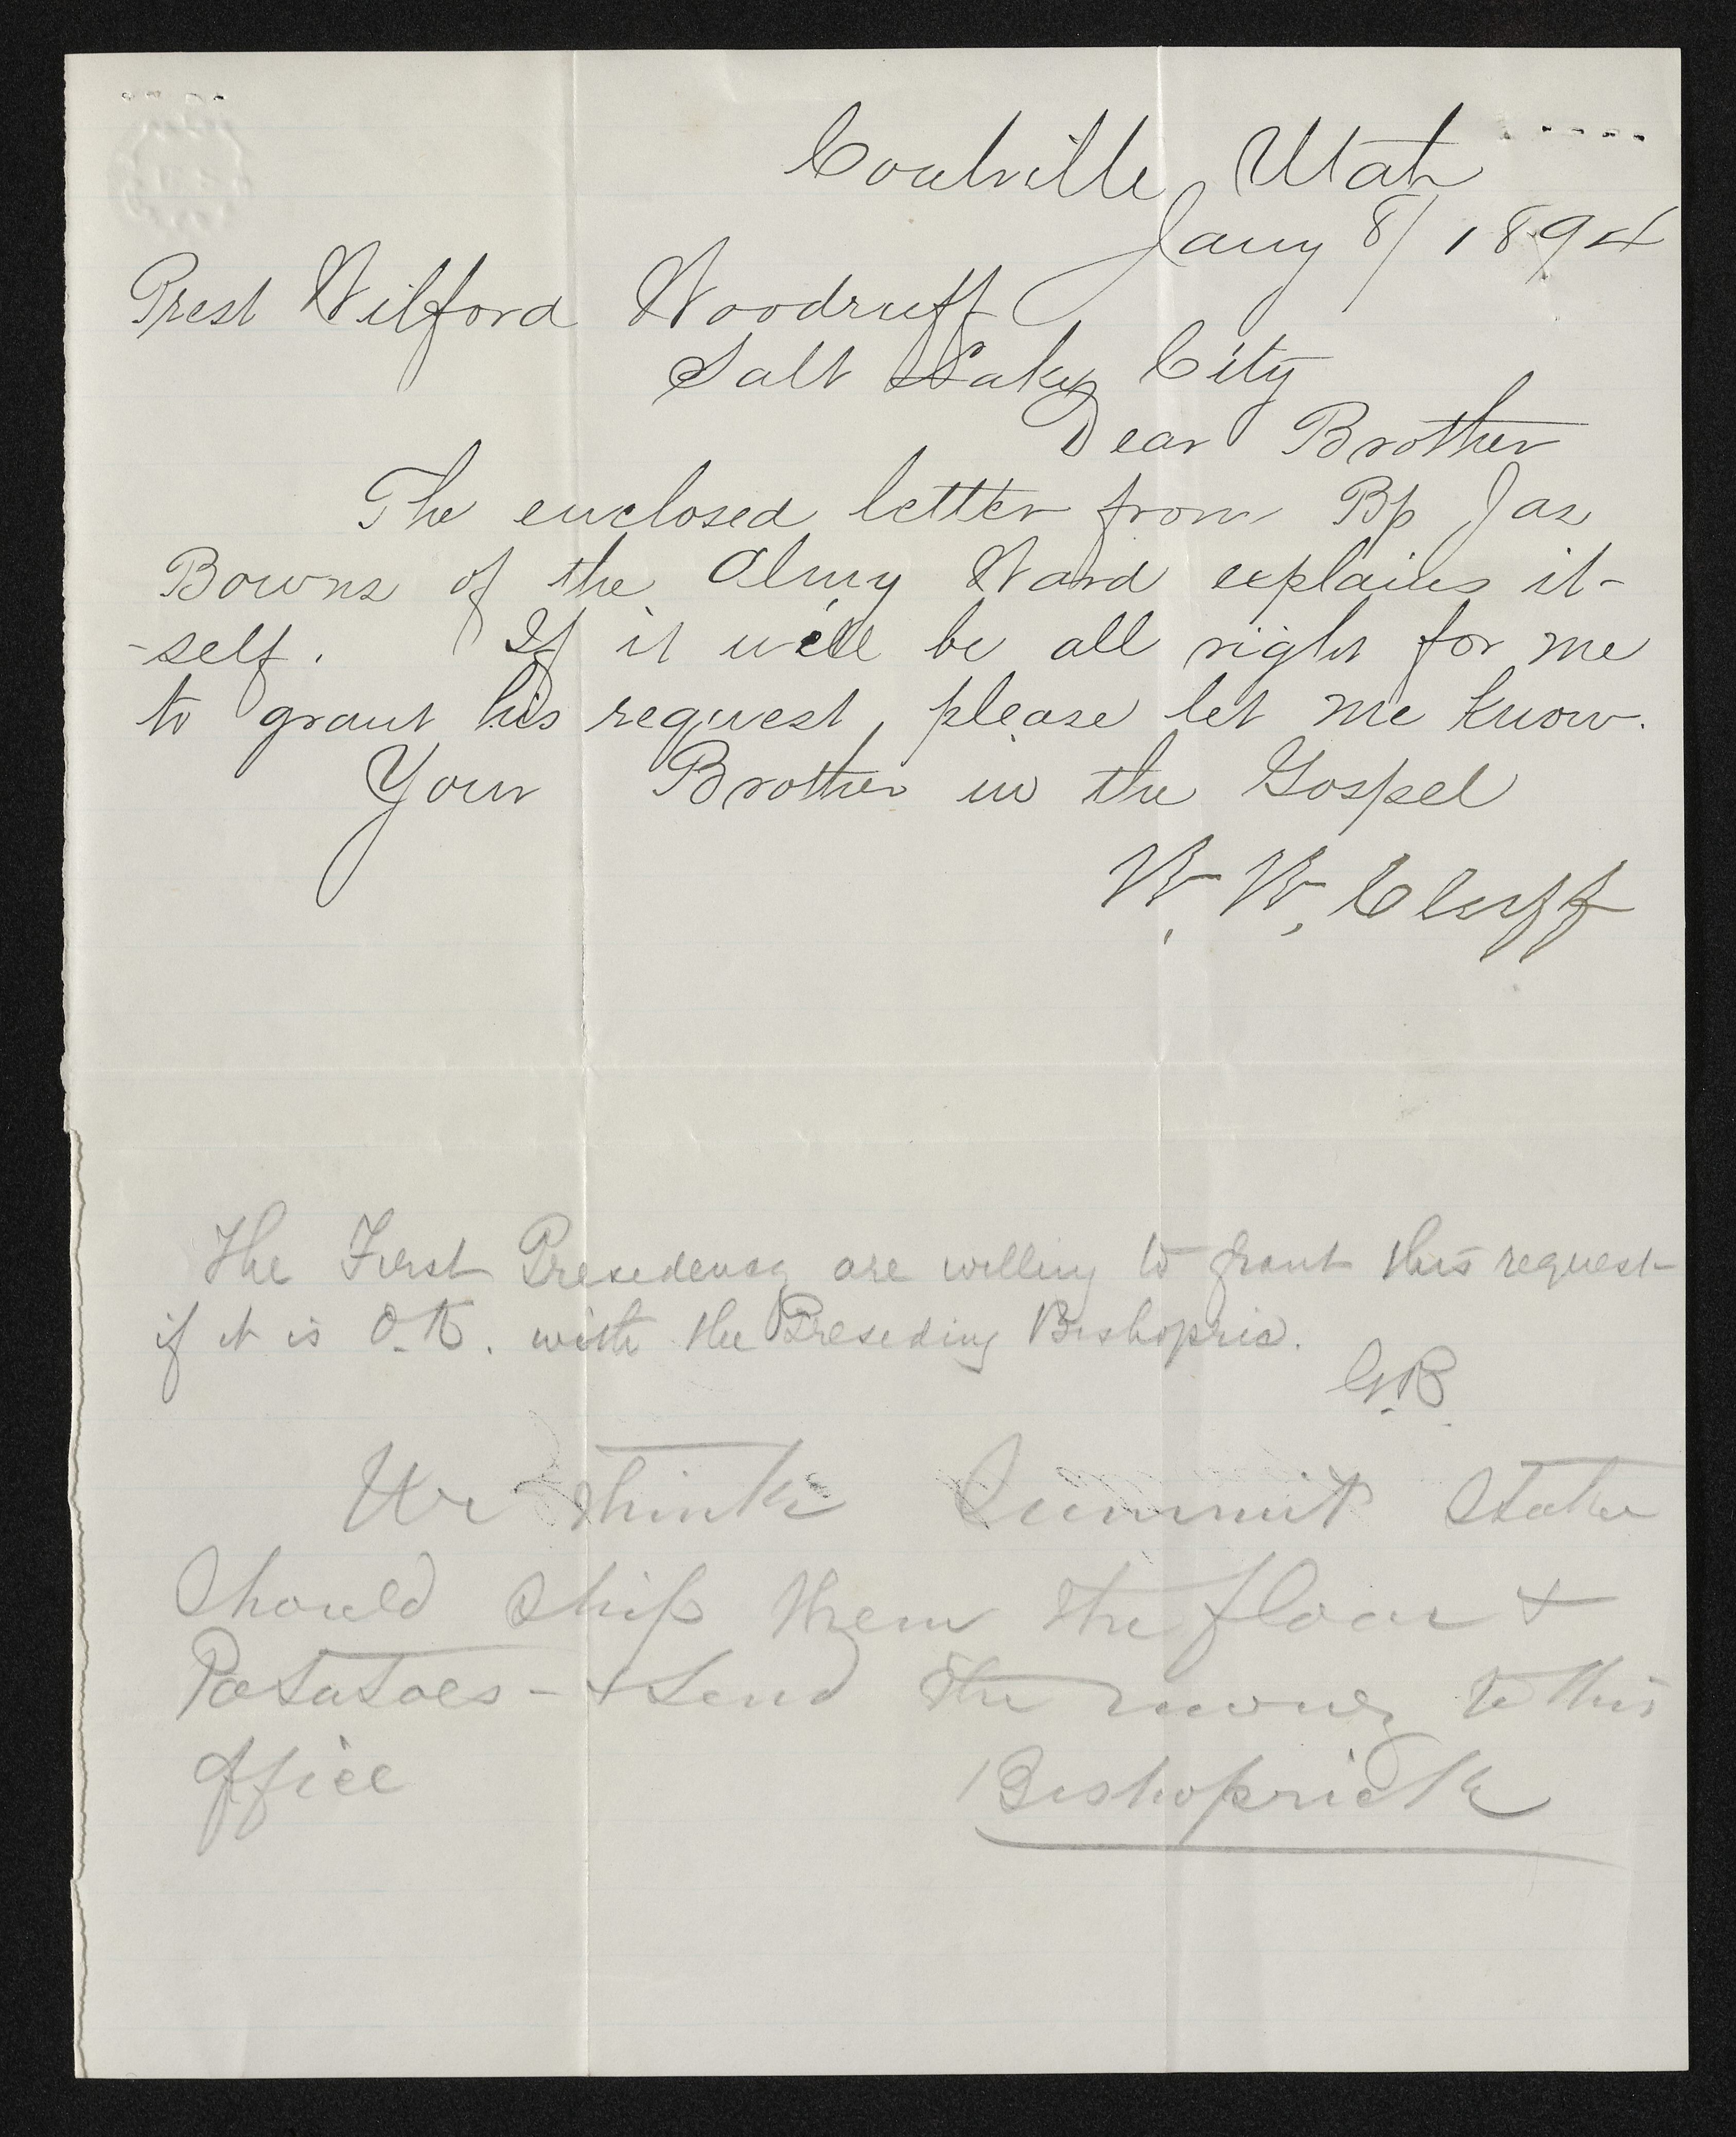 Coalville, Utah
Jany 8/ 1894
Prest Wilford Woodruff
Salt Lake City
Dear Brother
The enclosed letter from Bp Jas
Bowns of the Almy Ward explains it-
-self. If it will be all right for me
to grant his request, please let me know.
Your Brother in the Gospel
W. W. Cluff
The First Presidency are willing to grant this request
if it is O.K. with the Presiding Bishopric.
G.R.
We think Summit Stake
Should ship them the flour &
Potatoes - & send the money to this
office Bishoprick